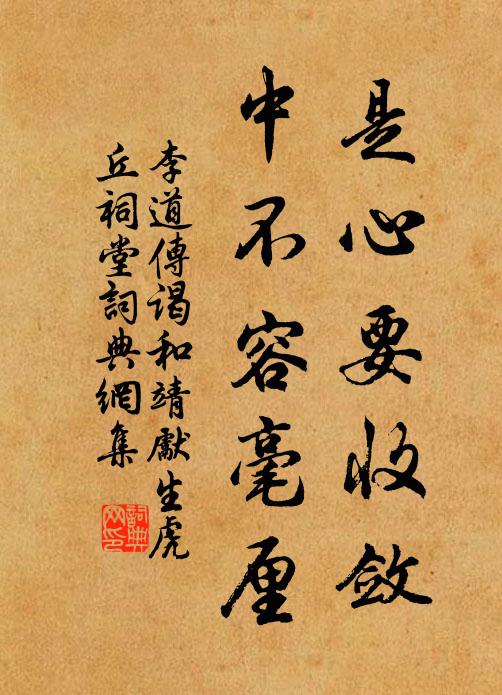 是心要收斂
中不容毫厘
李道傳謁和靖獻生虎
丘祠堂詞典網集
詞典
网印